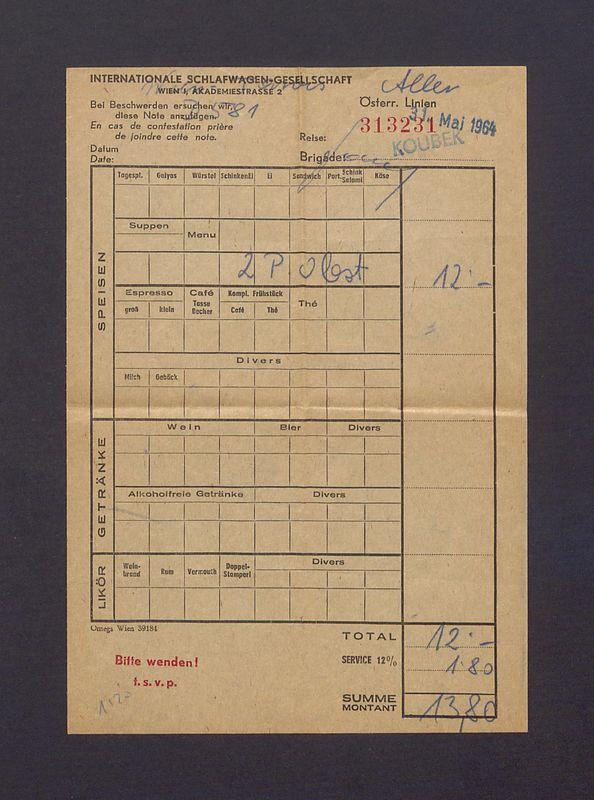 INTERNATIONALE SCHLAFWAGEN-GESELLSCHAFT
WIEN I, AKADEMIESTRASSE 2
Bei Beschwerden ersuchen wir,
diese Note anzufügen.
En cas de contestation prière
de joindre cette note.
Datum
Date:
Österr. Linien
313231
31. Mai 1964
Reise:
KOUBEK
Brigade:
SPEISEN
Tagespl. Gulyas Würstel SchinkenEi Ei Sandwich Port. Schink Salami Käse
Suppen
Menu
2 P Obst 12.-
Espresso Café Kompl. Frühstück Thé
groß klein Tasse Becher Café Thé
Divers
Milch Gebäck
GETRÄNKE
Wein Bier Divers
Alkoholfreie Getränke Divers
LIKÖR
Wein-brand Rum Vermouth Doppel-Stamperl Divers
Omega Wien 39184
TOTAL 12.-
Bitte wenden!
SERVICE 12% 1.80
t. s. v. p.
SUMME
MONTANT 13,80